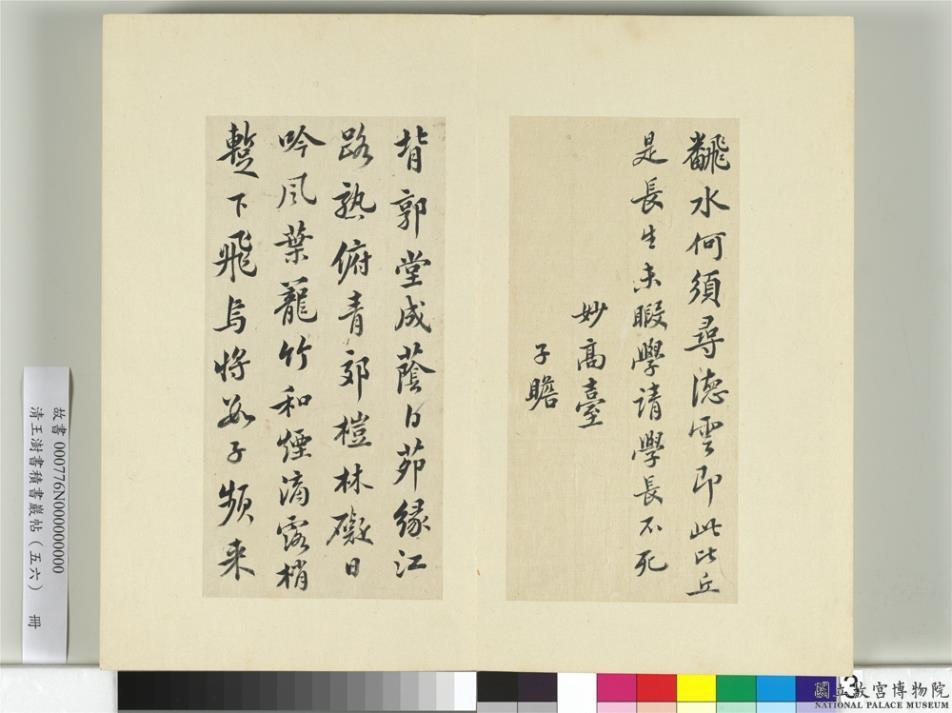 飜水何須尋德雲即此比丘
是長生未暇學請學長不死
妙高臺
子瞻
背郭堂成蔭白茆緣江
路熟俯青郊榿林礙日
吟風葉籠竹和煙滴露梢
蹔下飛烏將數子頻来
故書 000776N000000000
清王澍書積書巖帖(五六) 冊
3
國立故宮博物院
NATIONAL PALACE MUSEUM